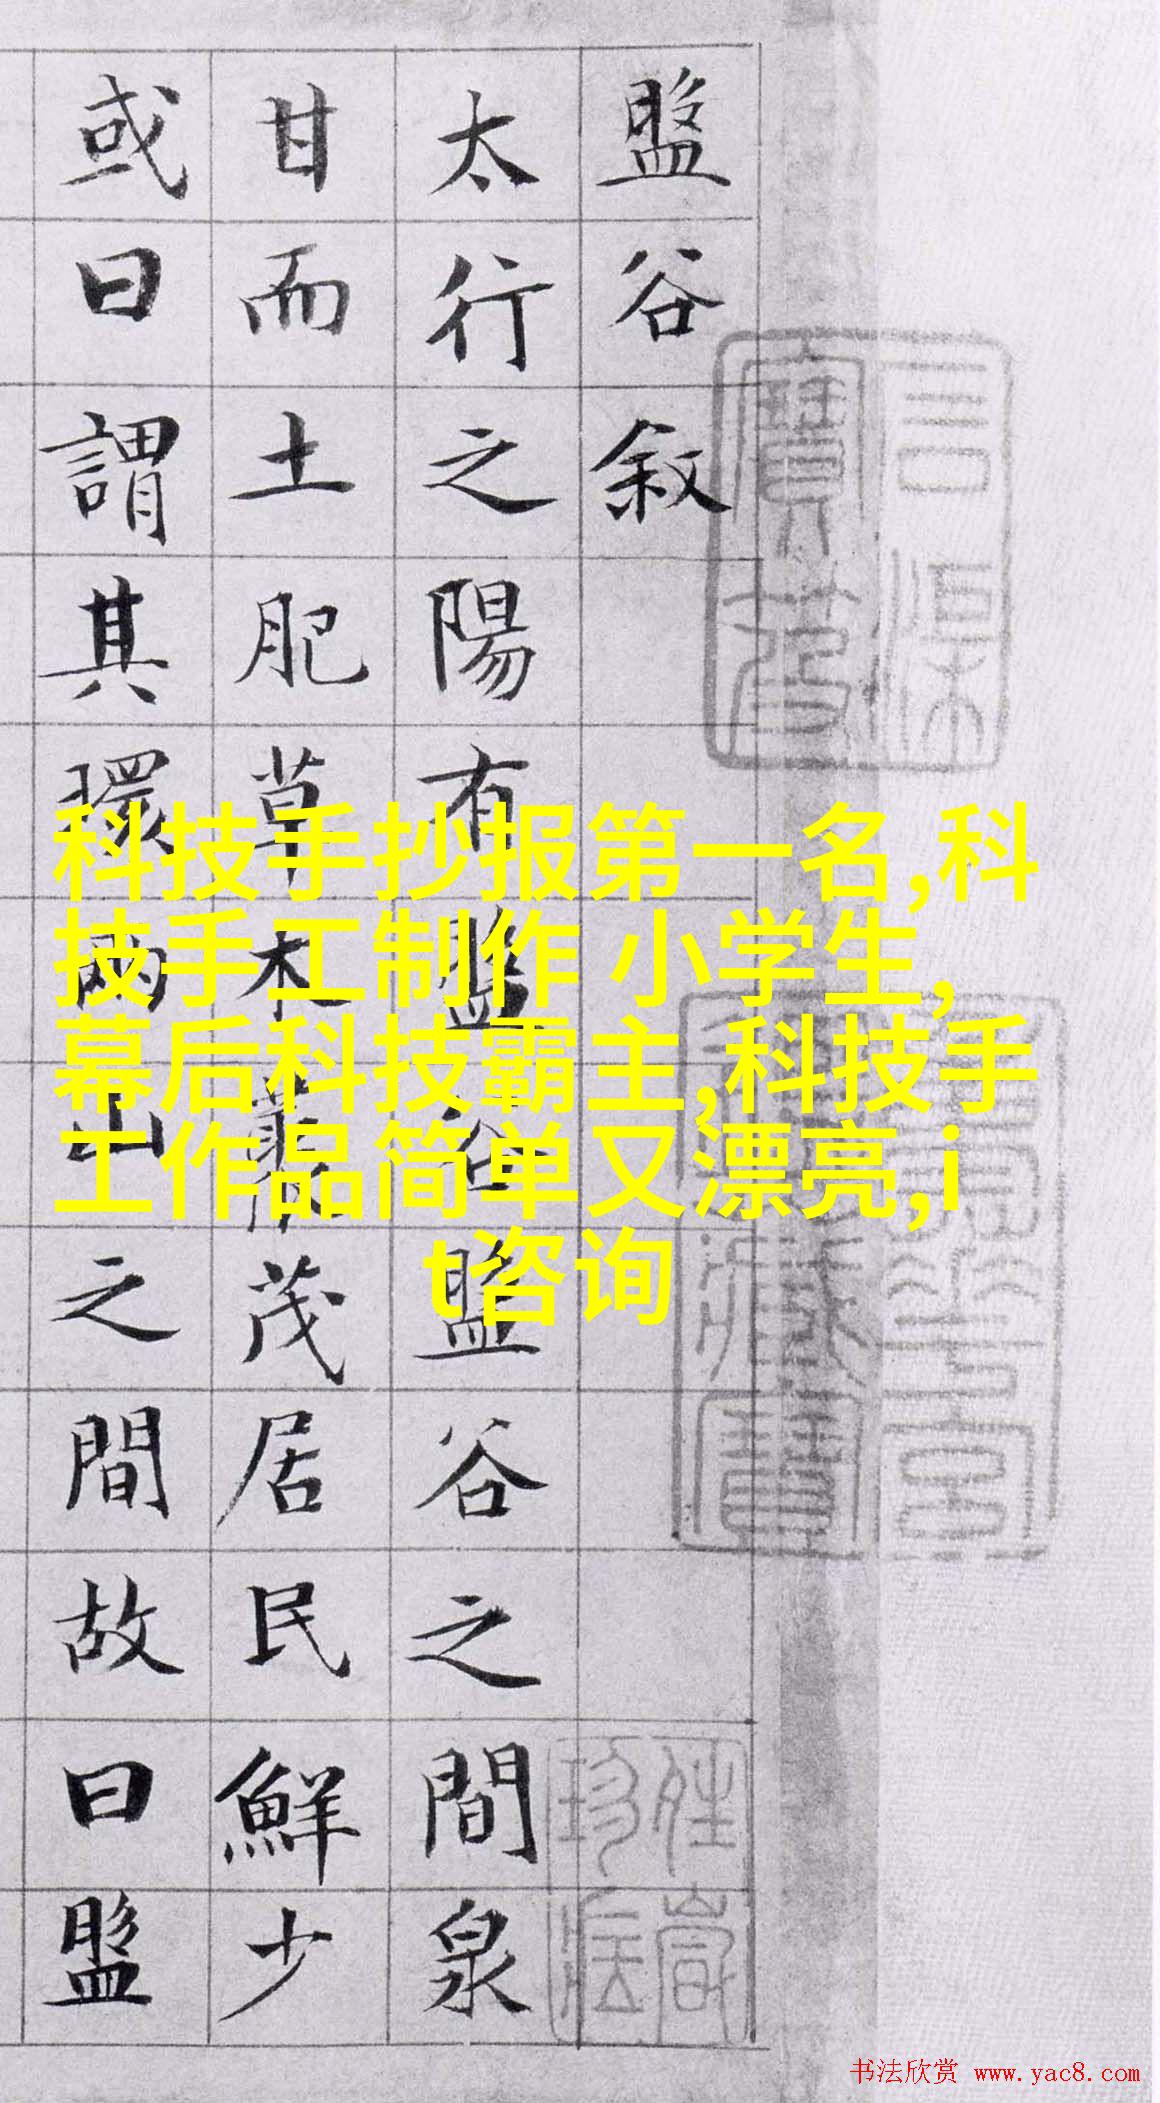 盤谷敘
太行之陽有盤谷盤谷之間泉
甘而土肥草木叢茂居民鮮少
或曰謂其環兩山之間故曰盤
科技手抄报第一名,科
技手工制作 小学生,
幕后科技霸主,科技手
工作品简单又漂亮,i
t咨询
书法欣赏 www.yac8.com